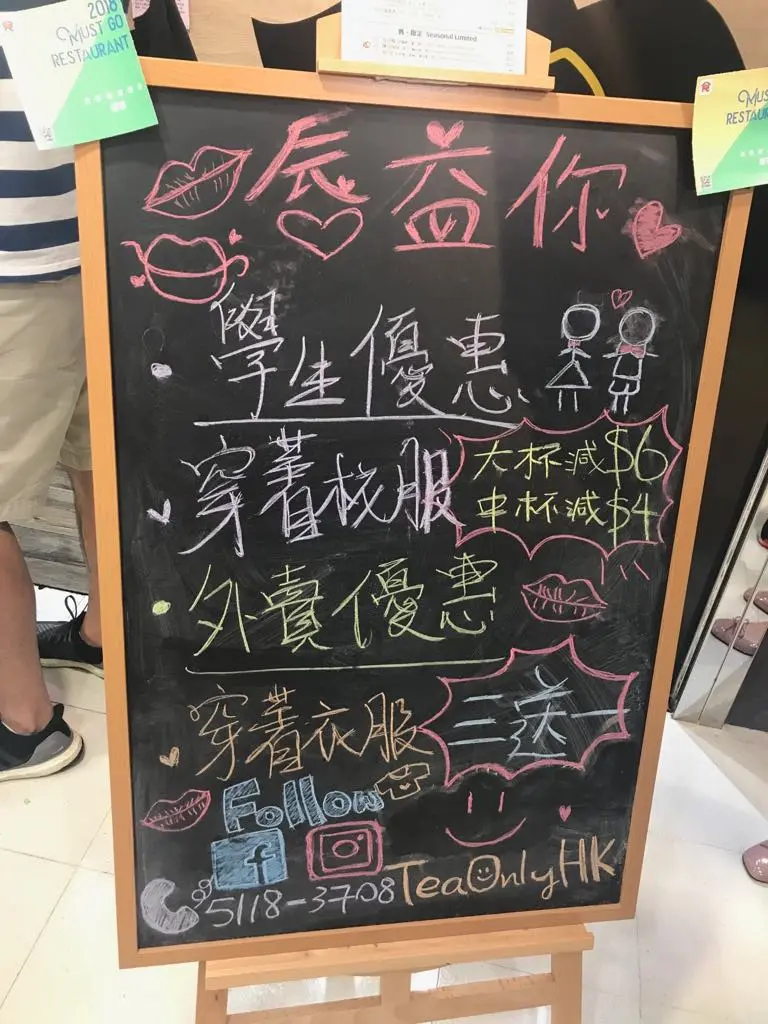 2018
MUST GO
RESTAURANT
Seasonal Limited
唇益你
學生優惠
穿着校服
大杯減$6
中杯減$4
外賣優惠
穿着衣服
二送一
Follow
f
5118-3708
TeaOnlyHK